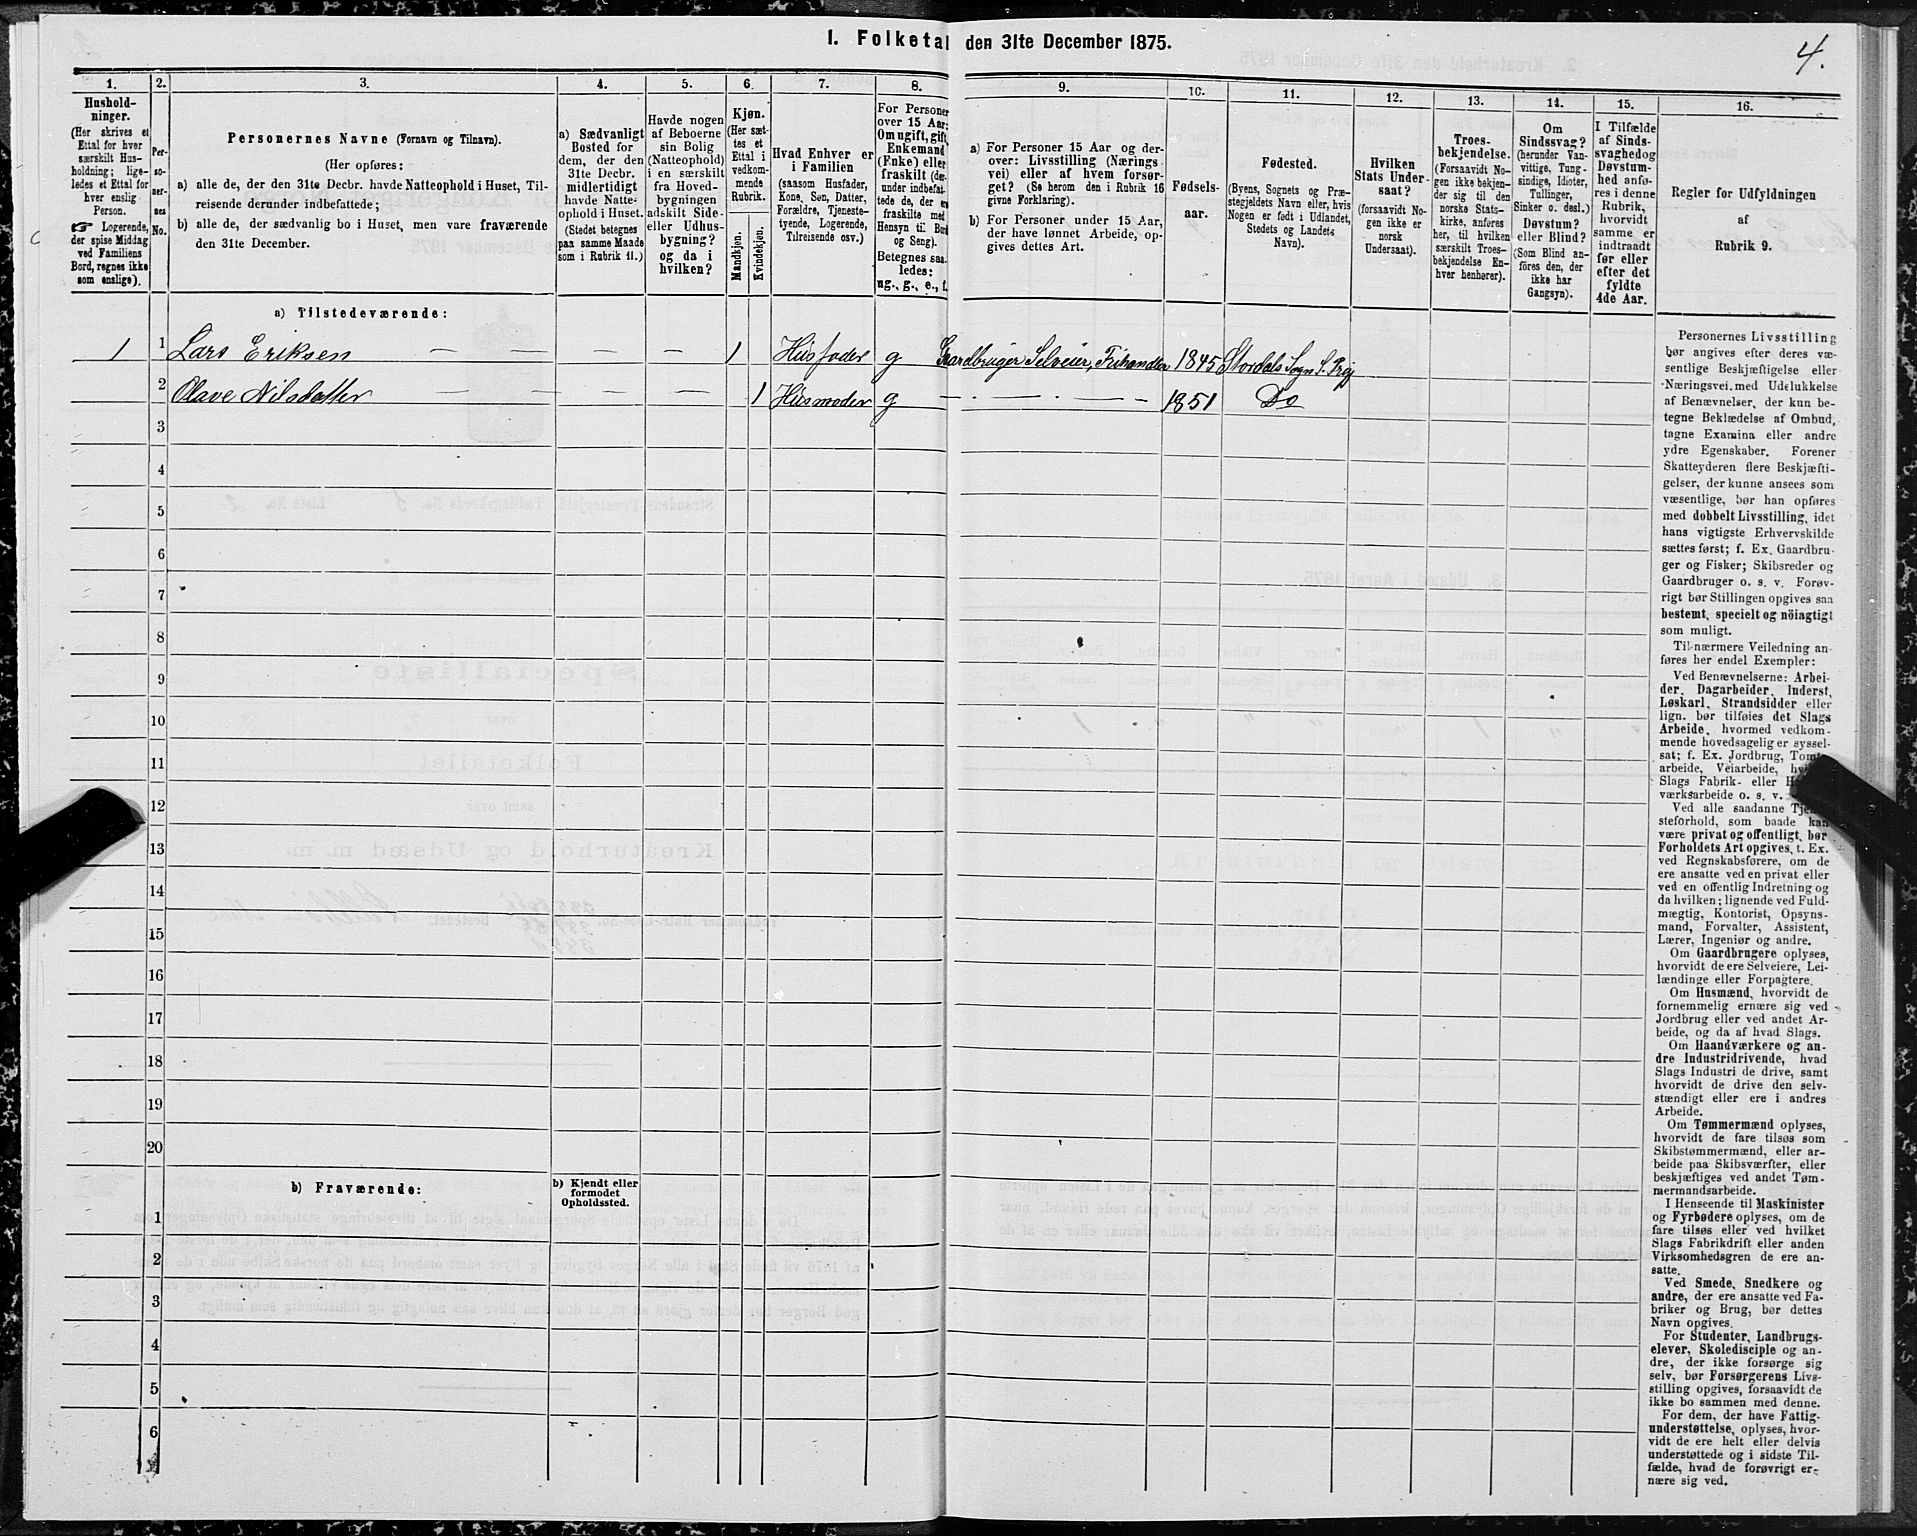 I. Folketal den 31te December 1875.
4.
1. 2. 3. 4. 5. 6. 7. 8. 9. 10. 11. 12. 13. 14. 15. 16.
Hushold-
ninger.
(Her skrives et
Ettal for hver
særskilt Hus-
holdning; lige-
ledes et Ettal for
hver enslig
Person.
☞ Logerende,
der spise Middag
ved Familiens
Bord, regnes ikke
som enslige).
Per-
so-
ner-
nes
No.
Personernes Navne (Fornavn og Tilnavn).
(Her opføres:
a) alle de, der den 31te Decbr. havde Natteophold i Huset, Til-
reisende derunder indbefattede;
b) alle de, der sædvanlig bo i Huset, men vare fraværende
den 31te December.
a) Sædvanligt
Bosted for
dem, der den
31te Decbr.
midlertidigt
havde Natte-
ophold i Huset.
(Stedet betegnes
paa samme Maade
som i Rubrik 11.)
Havde nogen
af Beboerne
sin Bolig
(Natteophold)
i en særskilt
fra Hoved-
bygningen
adskilt Side-
eller Udhus-
bygning?
og da i
hvilken?
Kjøn.
(Her sæt-
tes et
Ettal i
vedkom-
mende
Rubrik.
Mandkjøn.
Kvindekjøn.
Hvad Enhver er
i Familien
(saasom Husfader,
Kone, Søn, Datter,
Forældre, Tjeneste-
tyende, Logerende,
Tilreisende osv.)
For Personer
over 15 Aar:
Om ugift, gift,
Enkemand
(Enke) eller
fraskilt (der-
under indbefat-
tede de, der ere
fraskilte med
Hensyn til Bord
og Seng).
Betegnes saa-
ledes:
ug., g., e., f.
a) For Personer 15 Aar og der-
over: Livsstilling (Nærings
vei) eller af hvem forsør-
get? (Se herom den i Rubrik 16
givne Forklaring).
b) For Personer under 15 Aar,
der have lønnet Arbeide, op-
gives dettes Art.
Fødsels-
aar.
Fødested.
(Byens, Sognets og Præ-
stegjeldets Navn eller, hvis
Nogen er født i Udlandet,
Stedets og Landets
Navn).
Hvilken
Stats Under-
saat?
(forsaavidt No-
gen ikke er
norsk
Undersaat).
Troes-
bekjendelse.
(Forsaavidt No-
gen ikke bekjen-
der sig til den
norske Stats-
kirke, anføres
her, til hvilken
særskilt Troes-
bekjendelse En-
hver henhører).
Om
Sindssvag?
(herunder Van-
vittige, Tung-
sindige, Idioter,
Tullinger,
Sinker o. desl.)
Døvstum?
eller Blind?
(Som Blind an-
føres den, der
ikke har
Gangsyn).
I Tilfælde
af Sinds-
svaghed og
Døvstum-
hed anfø-
res i denne
Rubrik,
hvorvidt
samme er
indtraadt
før eller
efter det
fyldte
4de Aar.
Regler for Udfyldningen
af
Rubrik 9.
a) Tilstedeværende:
1 1 Lars Eriksen — — — — 1 Husfader g Gaardbruger Selveier, Frihandler 1845 Stordals Sogn S. Prgj
2 Olave Nilsdatter — — — 1 Husmoder g — — — — 1851 Do
3
4
5
6
7
8
9
10
11
12
13
14
15
16
17
18
19
20
b) Fraværende:
b) Kjendt eller
formodet
Opholdssted.
1
2
3
4
5
6
Personernes Livsstilling
bør angives efter deres væ-
sentlige Beskjæftigelse eller
Næringsvei med Udelukkelse
af Benævnelser, der kun be-
tegne Beklædelse af Ombud,
tagne Examina eller andre
ydre Egenskaber. Forener
Skatteyderen flere Beskjæfti-
gelser, der kunne ansees som
væsentlige, bør han opføres
med dobbelt Livsstilling, idet
hans vigtigste Erhvervskilde
sættes først; f. Ex. Gaardbru-
ger og Fisker; Skibsreder og
Gaardbruger o. s. v. Forøv-
rigt bør Stillingen opgives saa
bestemt, specielt og nöiagtigt
som muligt.
Til nærmere Veiledning an-
føres her endel Exempler:
Ved Benævnelserne: Arbei-
der, Dagarbeider, Inderst,
Løskarl, Strandsidder eller
lign. bør tilføies det Slags
Arbeide, hvormed vedkom-
mende hovedsagelig er syssel-
sat; f. Ex. Jordbrug, Tomte-
arbeide, Veiarbeide, hvilket
Slags Fabrik- eller Haand-
værksarbeide o. s. v.
Ved alle saadanne Tjene-
steforhold, som baade kan
være privat og offentligt, bør
Forholdets Art opgives, t. Ex.
ved Regnskabsførere, om de
ere ansatte ved en privat eller
ved en offentlig Indretning og
da hvilken; lignende ved Fuld-
mægtig, Kontorist, Opsyns-
mand, Forvalter, Assistent,
Lærer, Ingeniør og andre.
Om Gaardbrugere oplyses,
hvorvidt de ere Selveiere, Lei-
lændinge eller Forpagtere.
Om Husmænd, hvorvidt de
fornemmelig ernære sig ved
Jordbrug eller ved andet Ar-
beide, og da af hvad Slags.
Om Haandværkere og an-
dre Industridrivende, hvad
Slags Industri de drive, samt
hvorvidt de drive den selv-
stændigt eller ere i andres
Arbeide.
Om Tømmermænd oplyses,
hvorvidt de fare tilsøs som
Skibstømmermænd, eller ar-
beide paa Skibsværfter, eller
beskjæftiges ved andet Tøm-
mermandsarbeide.
I Henseende til Maskinister
og Fyrbødere oplyses, om de
fare tilsøs eller ved hvilket
Slags Fabrikdrift eller anden
Virksomhedsgren de ere an-
satte.
Ved Smede, Snedkere og
andre, der ere ansatte ved Fa-
briker og Brug, bør dettes
Navn opgives.
For Studenter, Landbrugs-
elever, Skoledisciple og an-
dre, der ikke forsørge sig
selv, bør Forsørgerens Livs-
stilling opgives, forsaavidt de
ikke bo sammen med denne.
For dem, der have Fattig-
understøttelse, oplyses, hvor-
vidt de ere helt eller delvis
understøttede og i sidste Til-
fælde, hvad de forøvrigt er-
nære sig ved.